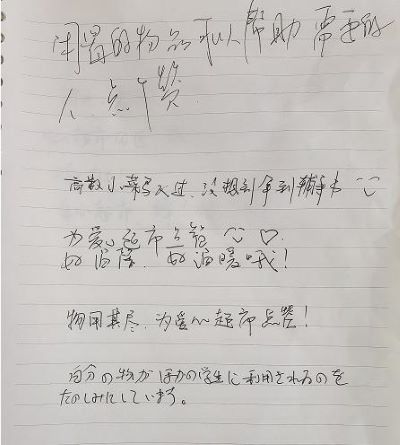 闲置的物品可以帮助需要的
人 点个赞
路过,没想到拿到辅导书
为爱心超市点赞
好温馨、好温暖哦!
物用其尽,为爱心超市点赞!
自分の物がほかの学生に利用されるのを
たのしみにしています。